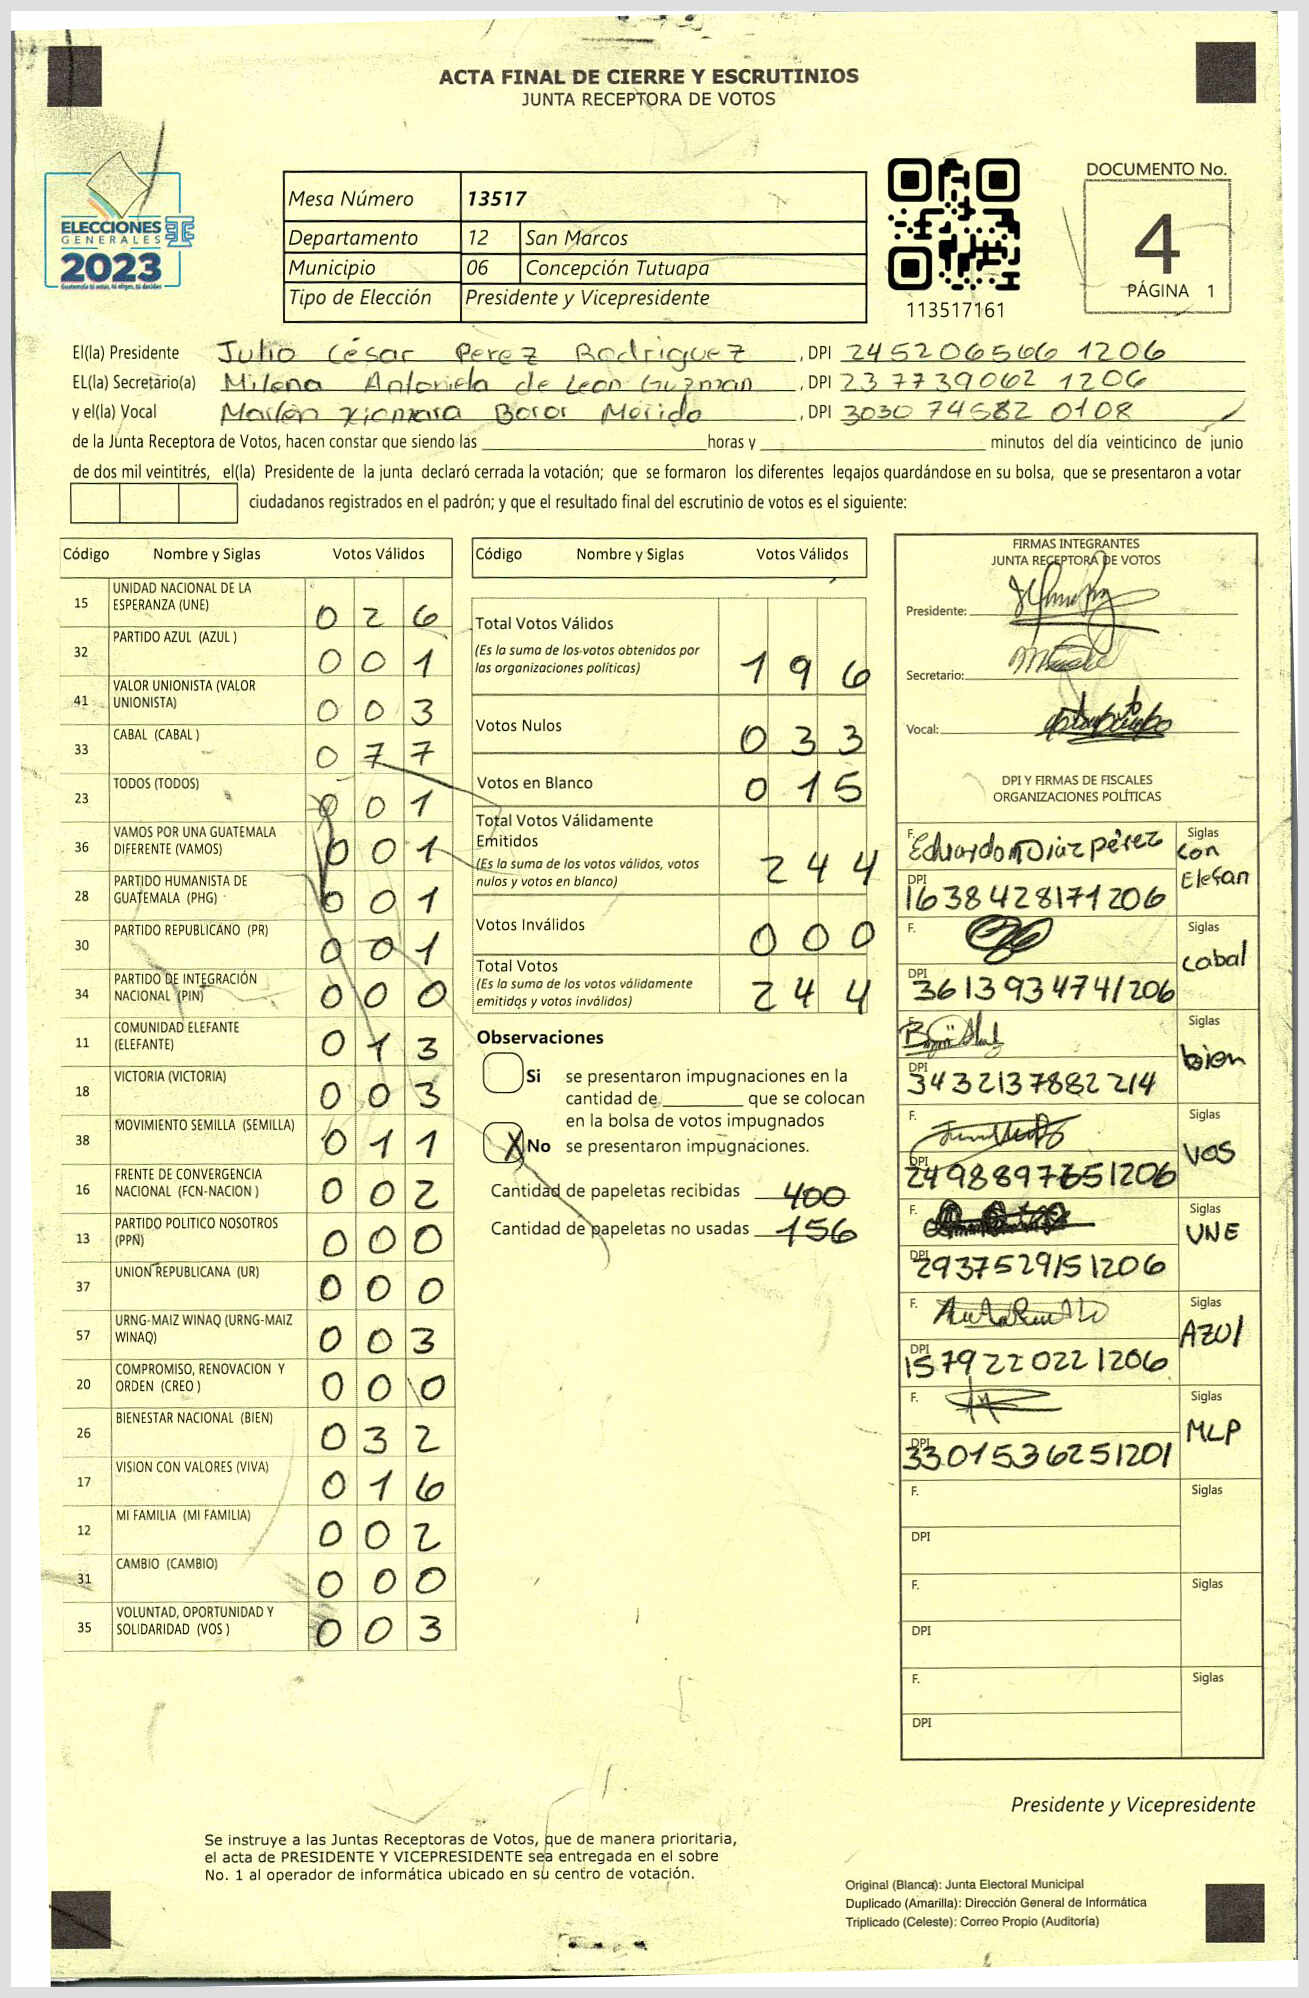 ACTA FINAL DE CIERRE Y ESCRUTINIOS
JUNTA RECEPTORA DE VOTOS
ELECCIONES
GENERALES
2023
Guatemala tú votas, tú eliges, tú decides
Mesa Número 13517
Departamento 12 San Marcos
Municipio 06 Concepción Tutuapa
Tipo de Elección Presidente y Vicepresidente
113517161
DOCUMENTO No.
4
PÁGINA 1
El(la) Presidente Julio César Perez Rodriguez , DPI 245206566 1206
EL(la) Secretario(a) Milena Antonieta de Leon Guzman , DPI 237739062 1206
y el(la) Vocal Marlen Xiomara Boror Merida , DPI 3030 74582 0108
de la Junta Receptora de Votos, hacen constar que siendo las horas y minutos del día veinticinco de junio
de dos mil veintitrés, el(la) Presidente de la junta declaró cerrada la votación; que se formaron los diferentes legajos guardándose en su bolsa, que se presentaron a votar
ciudadanos registrados en el padrón; y que el resultado final del escrutinio de votos es el siguiente:
Código Nombre y Siglas Votos Válidos
15 UNIDAD NACIONAL DE LA
ESPERANZA (UNE) 0 2 6
32 PARTIDO AZUL (AZUL ) 0 0 1
41 VALOR UNIONISTA (VALOR
UNIONISTA) 0 0 3
33 CABAL (CABAL ) 0 7 7
23 TODOS (TODOS) 0 0 1
36 VAMOS POR UNA GUATEMALA
DIFERENTE (VAMOS) 0 0 1
28 PARTIDO HUMANISTA DE
GUATEMALA (PHG) 0 0 1
30 PARTIDO REPUBLICANO (PR) 0 0 1
34 PARTIDO DE INTEGRACIÓN
NACIONAL (PIN) 0 0 0
11 COMUNIDAD ELEFANTE
(ELEFANTE) 0 1 3
18 VICTORIA (VICTORIA) 0 0 3
38 MOVIMIENTO SEMILLA (SEMILLA) 0 1 1
16 FRENTE DE CONVERGENCIA
NACIONAL (FCN-NACION ) 0 0 2
13 PARTIDO POLITICO NOSOTROS
(PPN) 0 0 0
37 UNION REPUBLICANA (UR) 0 0 0
57 URNG-MAIZ WINAQ (URNG-MAIZ
WINAQ) 0 0 3
20 COMPROMISO, RENOVACION Y
ORDEN (CREO ) 0 0 0
26 BIENESTAR NACIONAL (BIEN) 0 3 2
17 VISION CON VALORES (VIVA) 0 1 6
12 MI FAMILIA (MI FAMILIA) 0 0 2
31 CAMBIO (CAMBIO) 0 0 0
35 VOLUNTAD, OPORTUNIDAD Y
SOLIDARIDAD (VOS ) 0 0 3
Código Nombre y Siglas Votos Válidos
Total Votos Válidos
(Es la suma de los votos obtenidos por
las organizaciones políticas) 1 9 6
Votos Nulos 0 3 3
Votos en Blanco 0 1 5
Total Votos Válidamente
Emitidos
(Es la suma de los votos válidos, votos
nulos y votos en blanco) 2 4 4
Votos Inválidos 0 0 0
Total Votos
(Es la suma de los votos válidamente
emitidos y votos inválidos) 2 4 4
Observaciones
Si se presentaron impugnaciones en la
cantidad de que se colocan
en la bolsa de votos impugnados
X No se presentaron impugnaciones.
Cantidad de papeletas recibidas 400
Cantidad de papeletas no usadas 156
FIRMAS INTEGRANTES
JUNTA RECEPTORA DE VOTOS
Presidente:
Secretario:
Vocal:
DPI Y FIRMAS DE FISCALES
ORGANIZACIONES POLÍTICAS
F. Eduardo M Diaz pérez Siglas
con
Elefan
DPI 1638428171206
F. Siglas
cabal
DPI 3613934741206
F. Siglas
bien
DPI 3432137882214
F. Siglas
VOS
DPI 2498897651206
F. Siglas
UNE
DPI 2937529151206
F. Siglas
AZUl
DPI 1579220221206
F. Siglas
MLP
DPI 3301536251201
F. Siglas
DPI
F. Siglas
DPI
F. Siglas
DPI
Presidente y Vicepresidente
Se instruye a las Juntas Receptoras de Votos, que de manera prioritaria,
el acta de PRESIDENTE Y VICEPRESIDENTE sea entregada en el sobre
No. 1 al operador de informática ubicado en su centro de votación.
Original (Blanca): Junta Electoral Municipal
Duplicado (Amarilla): Dirección General de Informática
Triplicado (Celeste): Correo Propio (Auditoría)